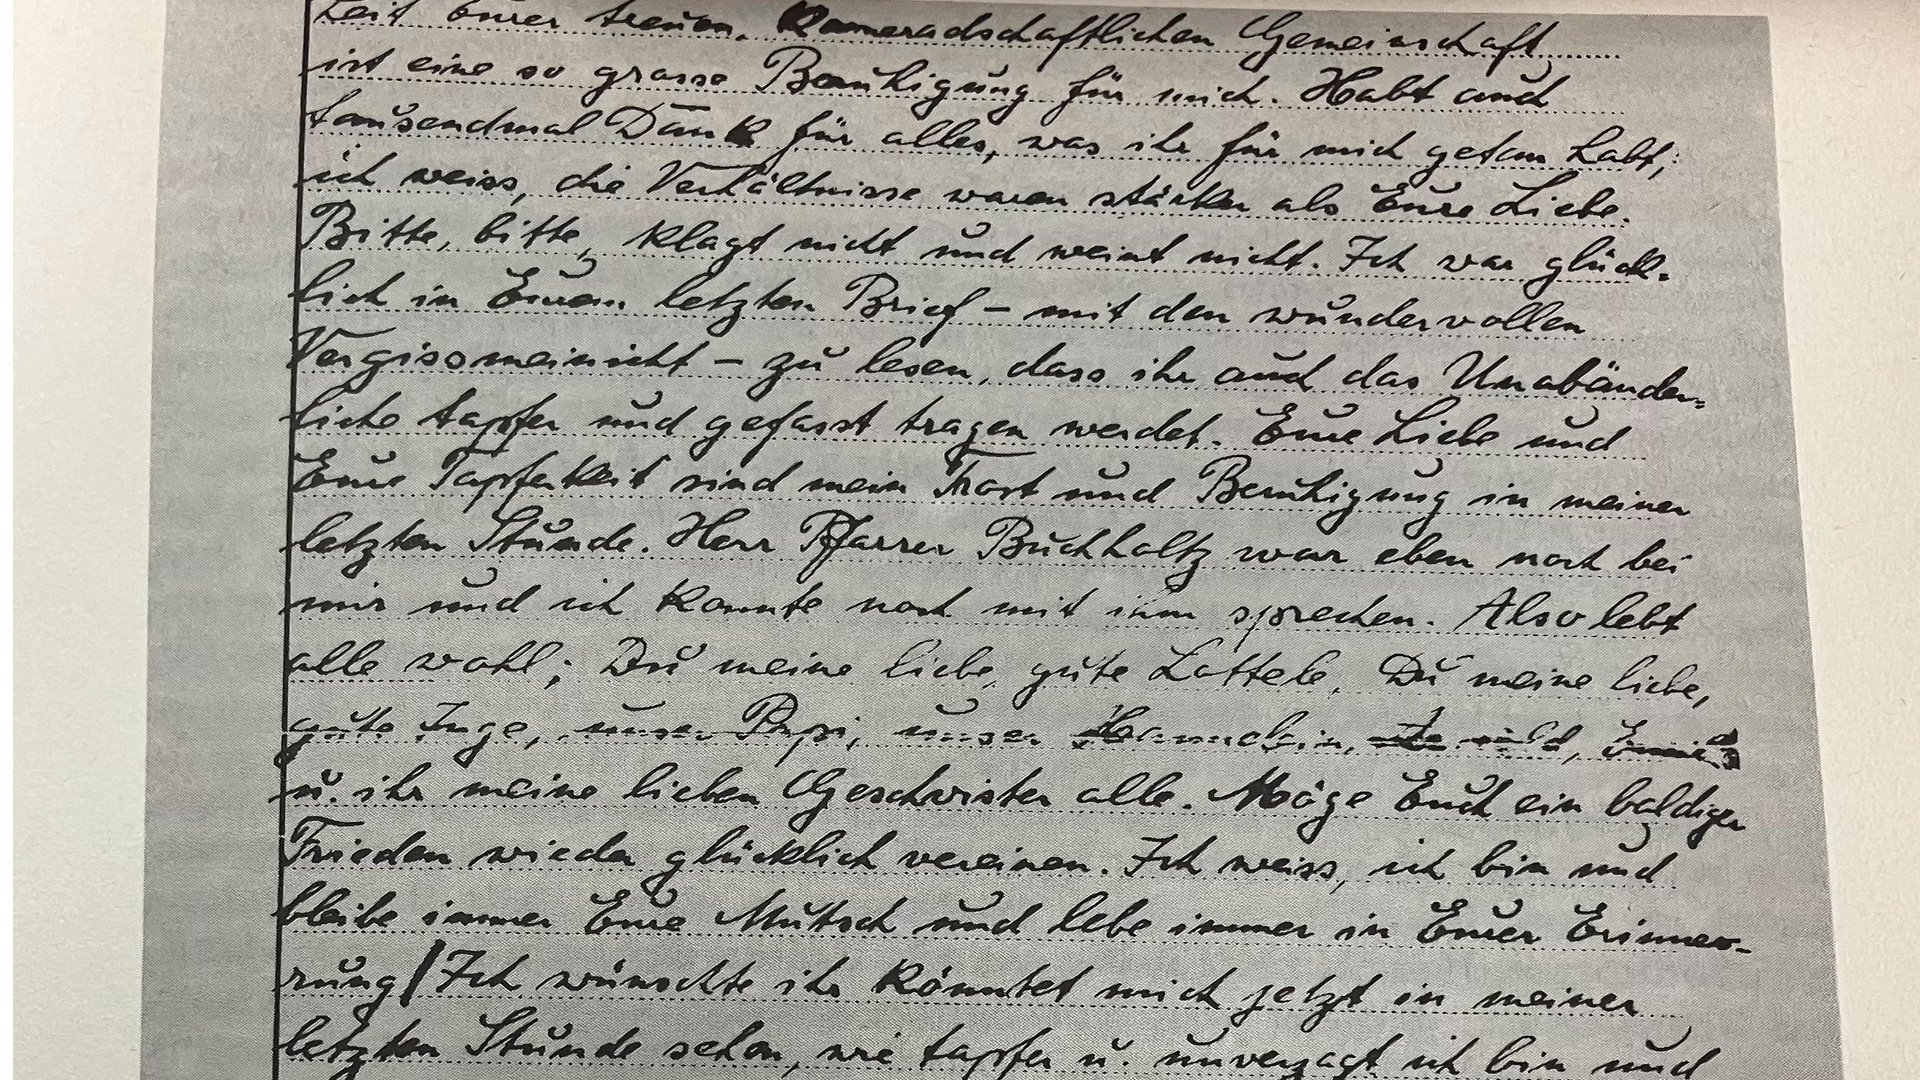 keit Eurer treuen, kameradschaftlichen Gemeinschaft
ist eine so grosse Beruhigung für mich. Habt auch
tausendmal Dank für alles, was ihr für mich getan habt;
ich weiss, die Verhältnisse waren stärker als Eure Liebe.
Bitte, bitte, klagt nicht und weint nicht. Ich war glück-
lich in Eurem letzten Brief – mit den wundervollen
Vergissmeinicht – zu lesen, dass ihr auch das Unabänder-
liche tapfer und gefasst tragen werdet. Eure Liebe und
Eure Tapferkeit sind mein Trost und Beruhigung in meiner
letzten Stunde. Herr Pfarrer Buchholtz war eben noch bei
mir und ich konnte noch mit ihm sprechen. Also lebt
alle wohl; Du meine liebe, gute Lottele, Du meine liebe,
gute Inge, unser Papi, unser
u. ihr meine lieben Geschwister alle. Möge Euch ein baldiger
Frieden wieder glücklich vereinen. Ich weiss, ich bin und
bleibe immer Eure Muttsch und lebe immer in Eurer Erinner-
rung/ Ich wünschte ihr könntet mich jetzt in meiner
letzten Stunde sehen, wie tapfer u. unverzagt ich bin und